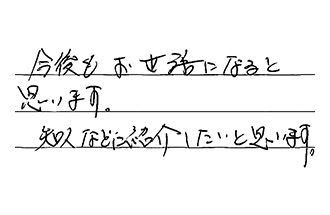 今後もお世話になると
思います。
知人などに紹介したいと思います。